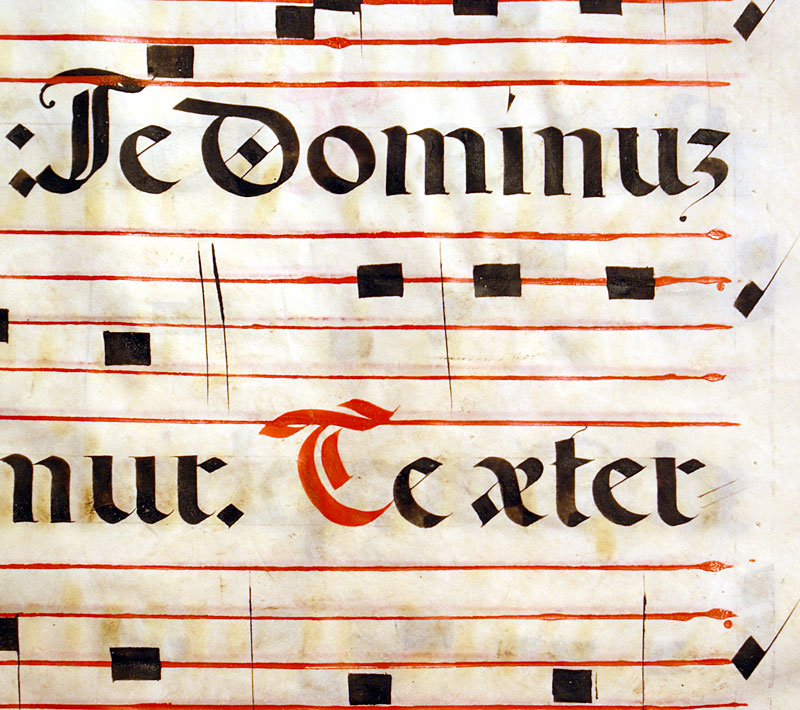 : Te Dominuʒ
nur. Te æter